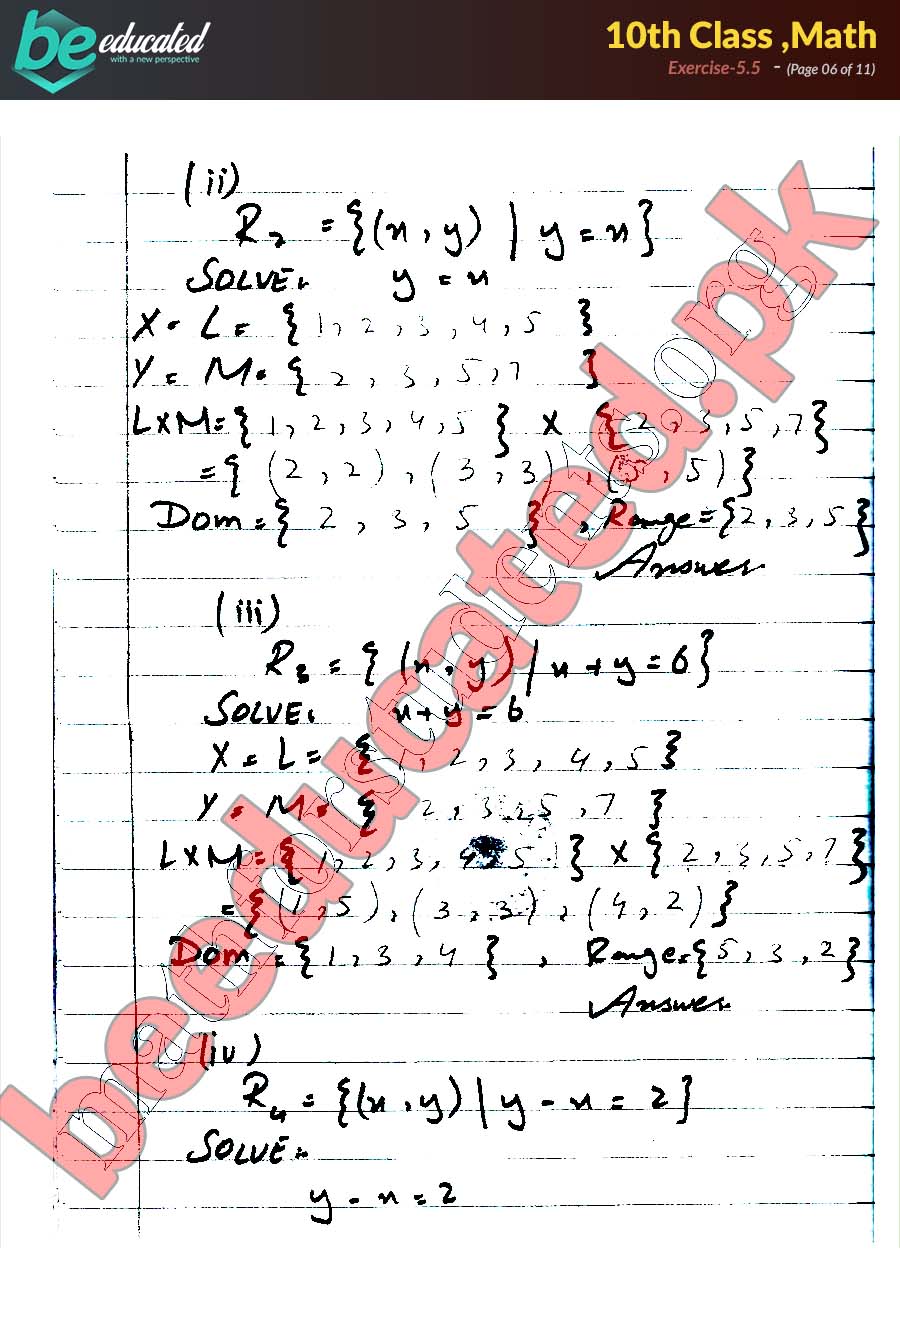 be educated
with a new perspective
10th Class ,Math
Exercise-5.5 - (Page 06 of 11)
(ii)
R₂ = {(x, y) | y = x}
SOLVE. y = x
X = L = { 1, 2, 3, 4, 5 }
Y = M = { 2, 3, 5, 7 }
L×M = { 1, 2, 3, 4, 5 } × { 2, 3, 5, 7 }
= { (2, 2), (3, 3), (5, 5) }
Dom = { 2, 3, 5 }, Range = {2, 3, 5}
Answer
(iii)
R₃ = { (x, y) | x + y = 6}
SOLVE. x + y = 6
X = L = { 1, 2, 3, 4, 5 }
Y = M = { 2, 3, 5, 7 }
L×M = { 1, 2, 3, 4, 5 } × { 2, 3, 5, 7 }
= { (1, 5), (3, 3), (4, 2) }
Dom = { 1, 3, 4 }, Range = {5, 3, 2}
Answer
(iv)
R₄ = {(x, y) | y - x = 2}
SOLVE.
y - x = 2
beeducated.pk